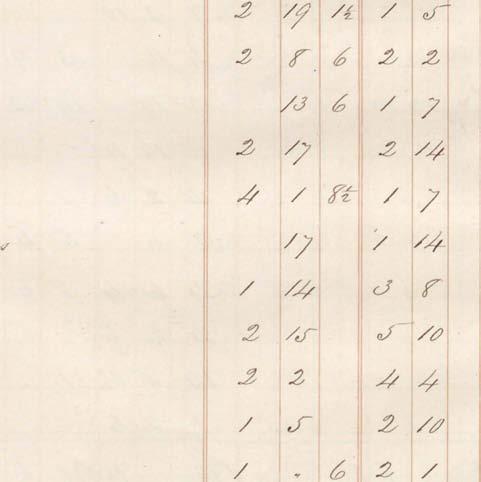 2 19 1½ 1 5
2 8 6 2 2
13 6 1 7
2 17 2 14
4 1 8½ 1 7
s 17 1 14
1 14 3 8
2 15 5 10
2 2 4 4
1 5 2 10
1 " 6 2 1